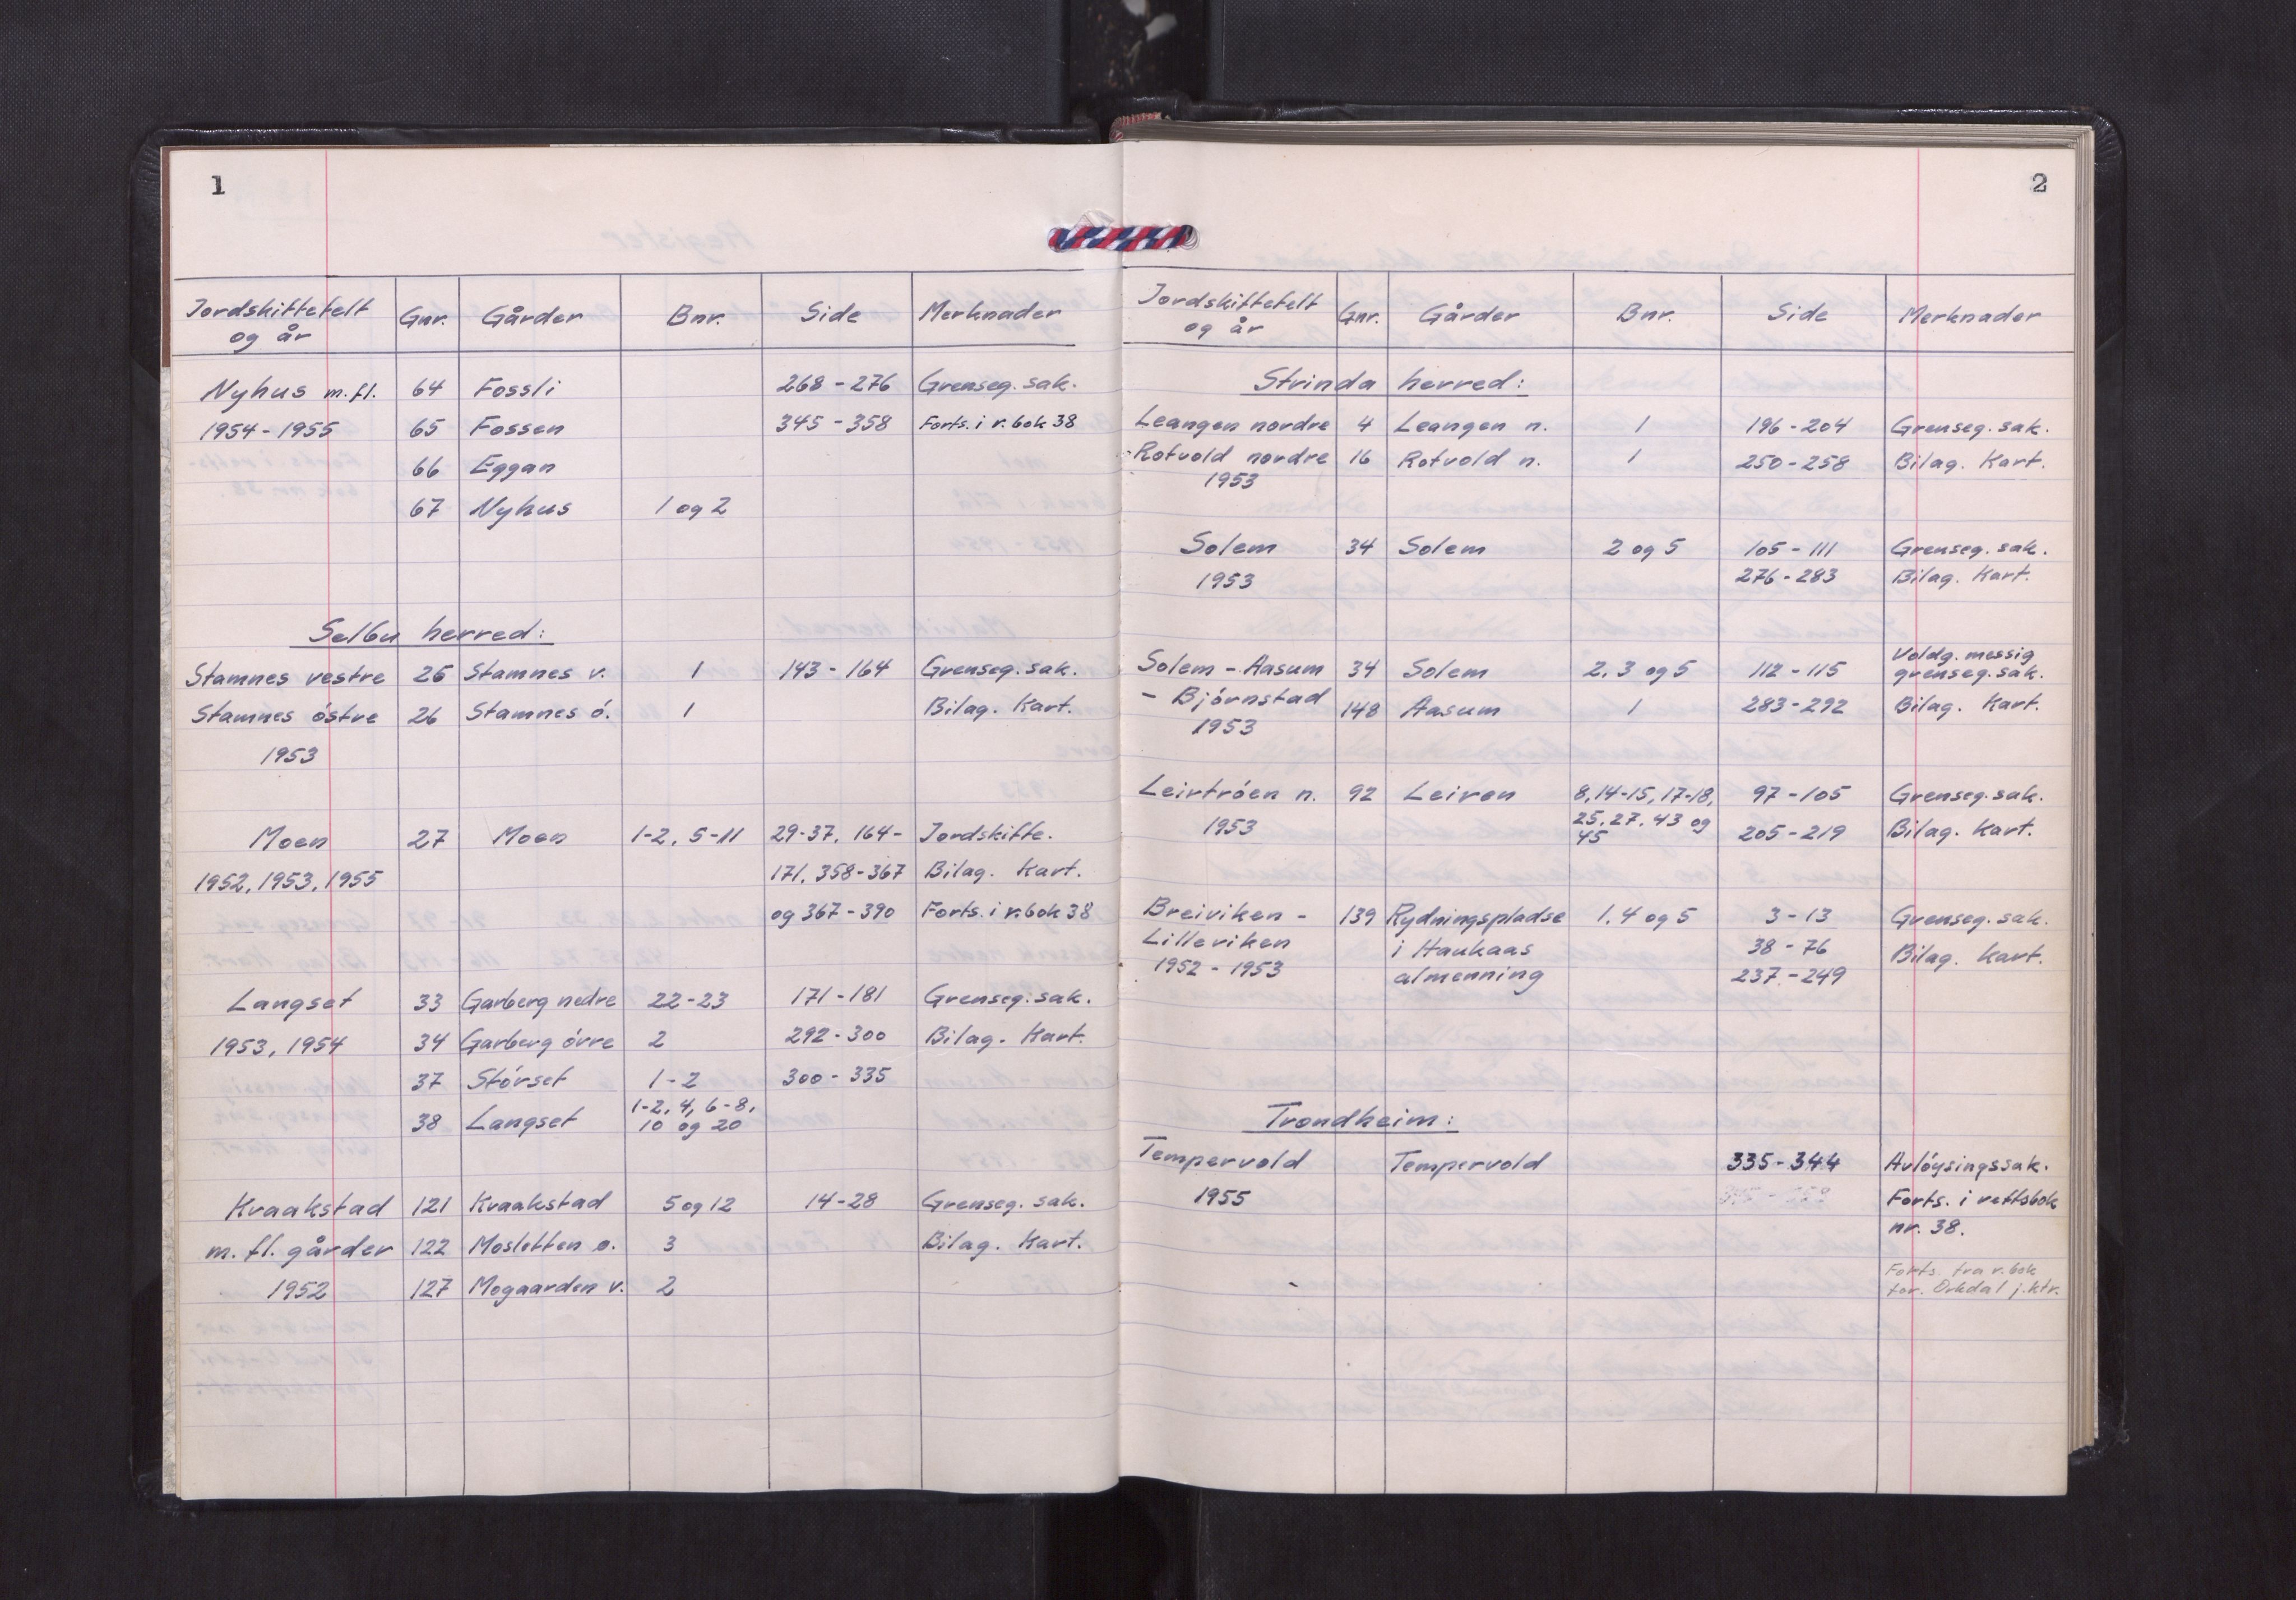 1
Jordskiftefelt og år | Gnr. | Gårder | Bnr. | Side | Merknader
Nyhus m.fl. | 64 | Fossli | | 268-276 | Grenseg. sak.
1954-1955 | 65 | Fossen | | 345-358 | Forts. i r.bok 38
66 | Eggan
67 | Nyhus | 1 og 2
Selbu herred:
Stamnes vestre | 25 | Stamnes v. | 1 | 143-164 | Grenseg. sak.
Stamnes östre | 26 | Stamnes ö. | 1 | | Bilag. Kart.
1953
Moen | 27 | Moen | 1-2, 5-11 | 29-37, 164- | Jordskifte.
1952, 1953, 1955 | | | | 171, 358-367 | Bilag. Kart.
og 367-390 | Forts. i r.bok 38
Langset | 33 | Garberg nedre | 22-23 | 171-181 | Grenseg. sak.
1953, 1954 | 34 | Garberg övre | 2 | 292-300 | Bilag. Kart.
37 | Störset | 1-2 | 300-335
38 | Langset | 1-2, 4, 6-8,
10 og 20
Kvaakstad | 121 | Kvaakstad | 5 og 12 | 14-28 | Grenseg. sak.
m.fl. gårder | 122 | Mosletten ø. | 3 | | Bilag. Kart.
1952 | 127 | Mogaarden v. | 2
2
Jordskiftefelt og år | Gnr. | Gårder | Bnr. | Side | Merknader
Strinda herred:
Leangen nordre | 4 | Leangen n. | 1 | 196-204 | Grenseg. sak.
Rotvold nordre | 16 | Rotvold n. | 1 | 250-258 | Bilag. Kart.
1953
Solem | 34 | Solem | 2 og 5 | 105-111 | Grenseg. sak.
1953 | | | | 276-283 | Bilag. Kart.
Solem - Aasum | 34 | Solem | 2, 3 og 5 | 112-115 | Voldg. messig grenseg. sak.
- Björnstad | 148 | Aasum | 1 | 283-292 | Bilag. Kart.
1953
Leirtröen n. | 92 | Leiren | 8, 14-15, 17-18, | 97-105 | Grenseg. sak.
1953 | | | 25, 27, 43 og 45 | 205-219 | Bilag. Kart.
Breiviken - | 139 | Rydningspladse | 1, 4 og 5 | 3-13 | Grenseg. sak.
Lilleviken | | i Haukaas | | 38-76 | Bilag. Kart.
1952-1953 | | almenning | | 237-249
Trondheim:
Tempervold | | Tempervold | | 335-344 | Avlöysingssak.
1955 | | | | | Forts. i rettsbok
nr. 38.
Forts. fra r.bok
for. Orkdal j.ktr.